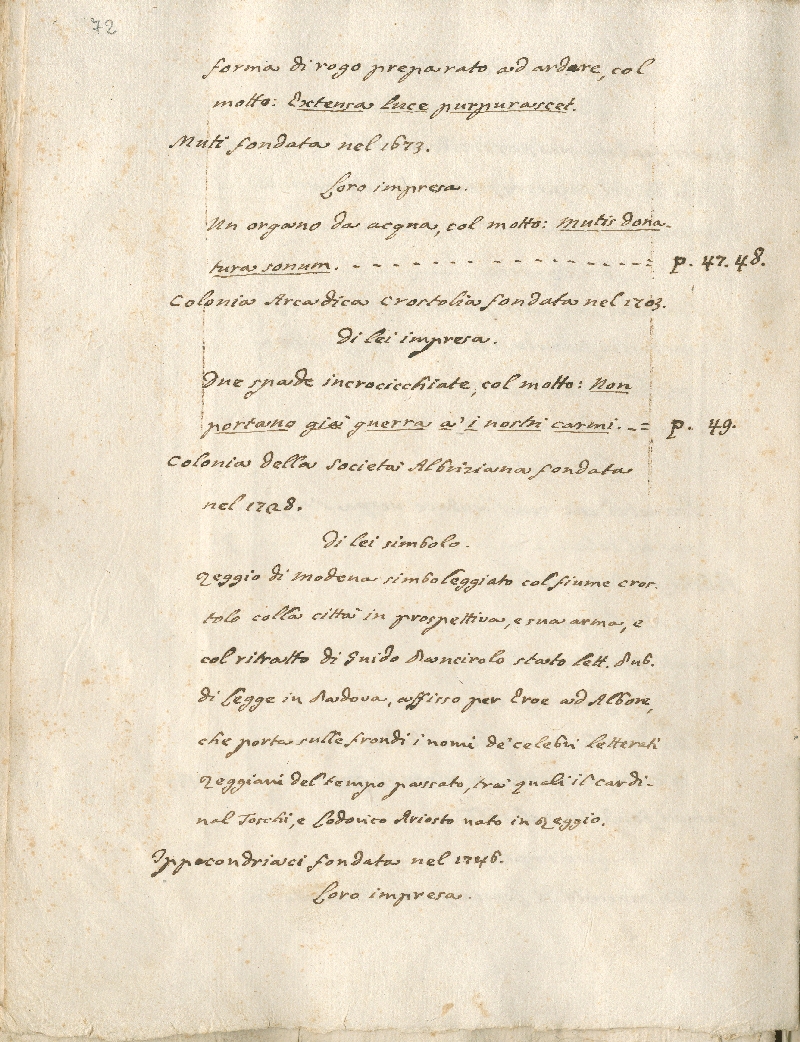 72
forma di rogo preparato ad ardere, col
motto: Extensa luce purpurascet.
Muti fondata nel 1673.
Loro impresa.
Un organo da acqua, col motto: Mutis dona-
tura sonum. - - - - - - - - - - - - - - - = p. 47. 48.
Colonia Arcadica Crostolia fondata nel 1703.
Di lei impresa.
Due spade incrocicchiate, col motto: Non
portano già guerra a' i nostri carmi. - = p. 49.
Colonia della Società Albriziana fondata
nel 1728.
Di lei simbolo.
Reggio di Modena simboleggiato col fiume Cros-
tolo colla città in prospettiva, e sua arma, e
col ritratto di Guido Pancirolo stato Lett. Pub.
di Legge in Padova, affisso per Eroe ad Albore,
che porta sulle frondi i nomi de' celebri Letterati
Reggiani del tempo passato, tra' quali il Cardi-
nal Toschi, e Lodovico Ariosto nato in Reggio.
Ippocondriaci fondata nel 1746.
Loro impresa.